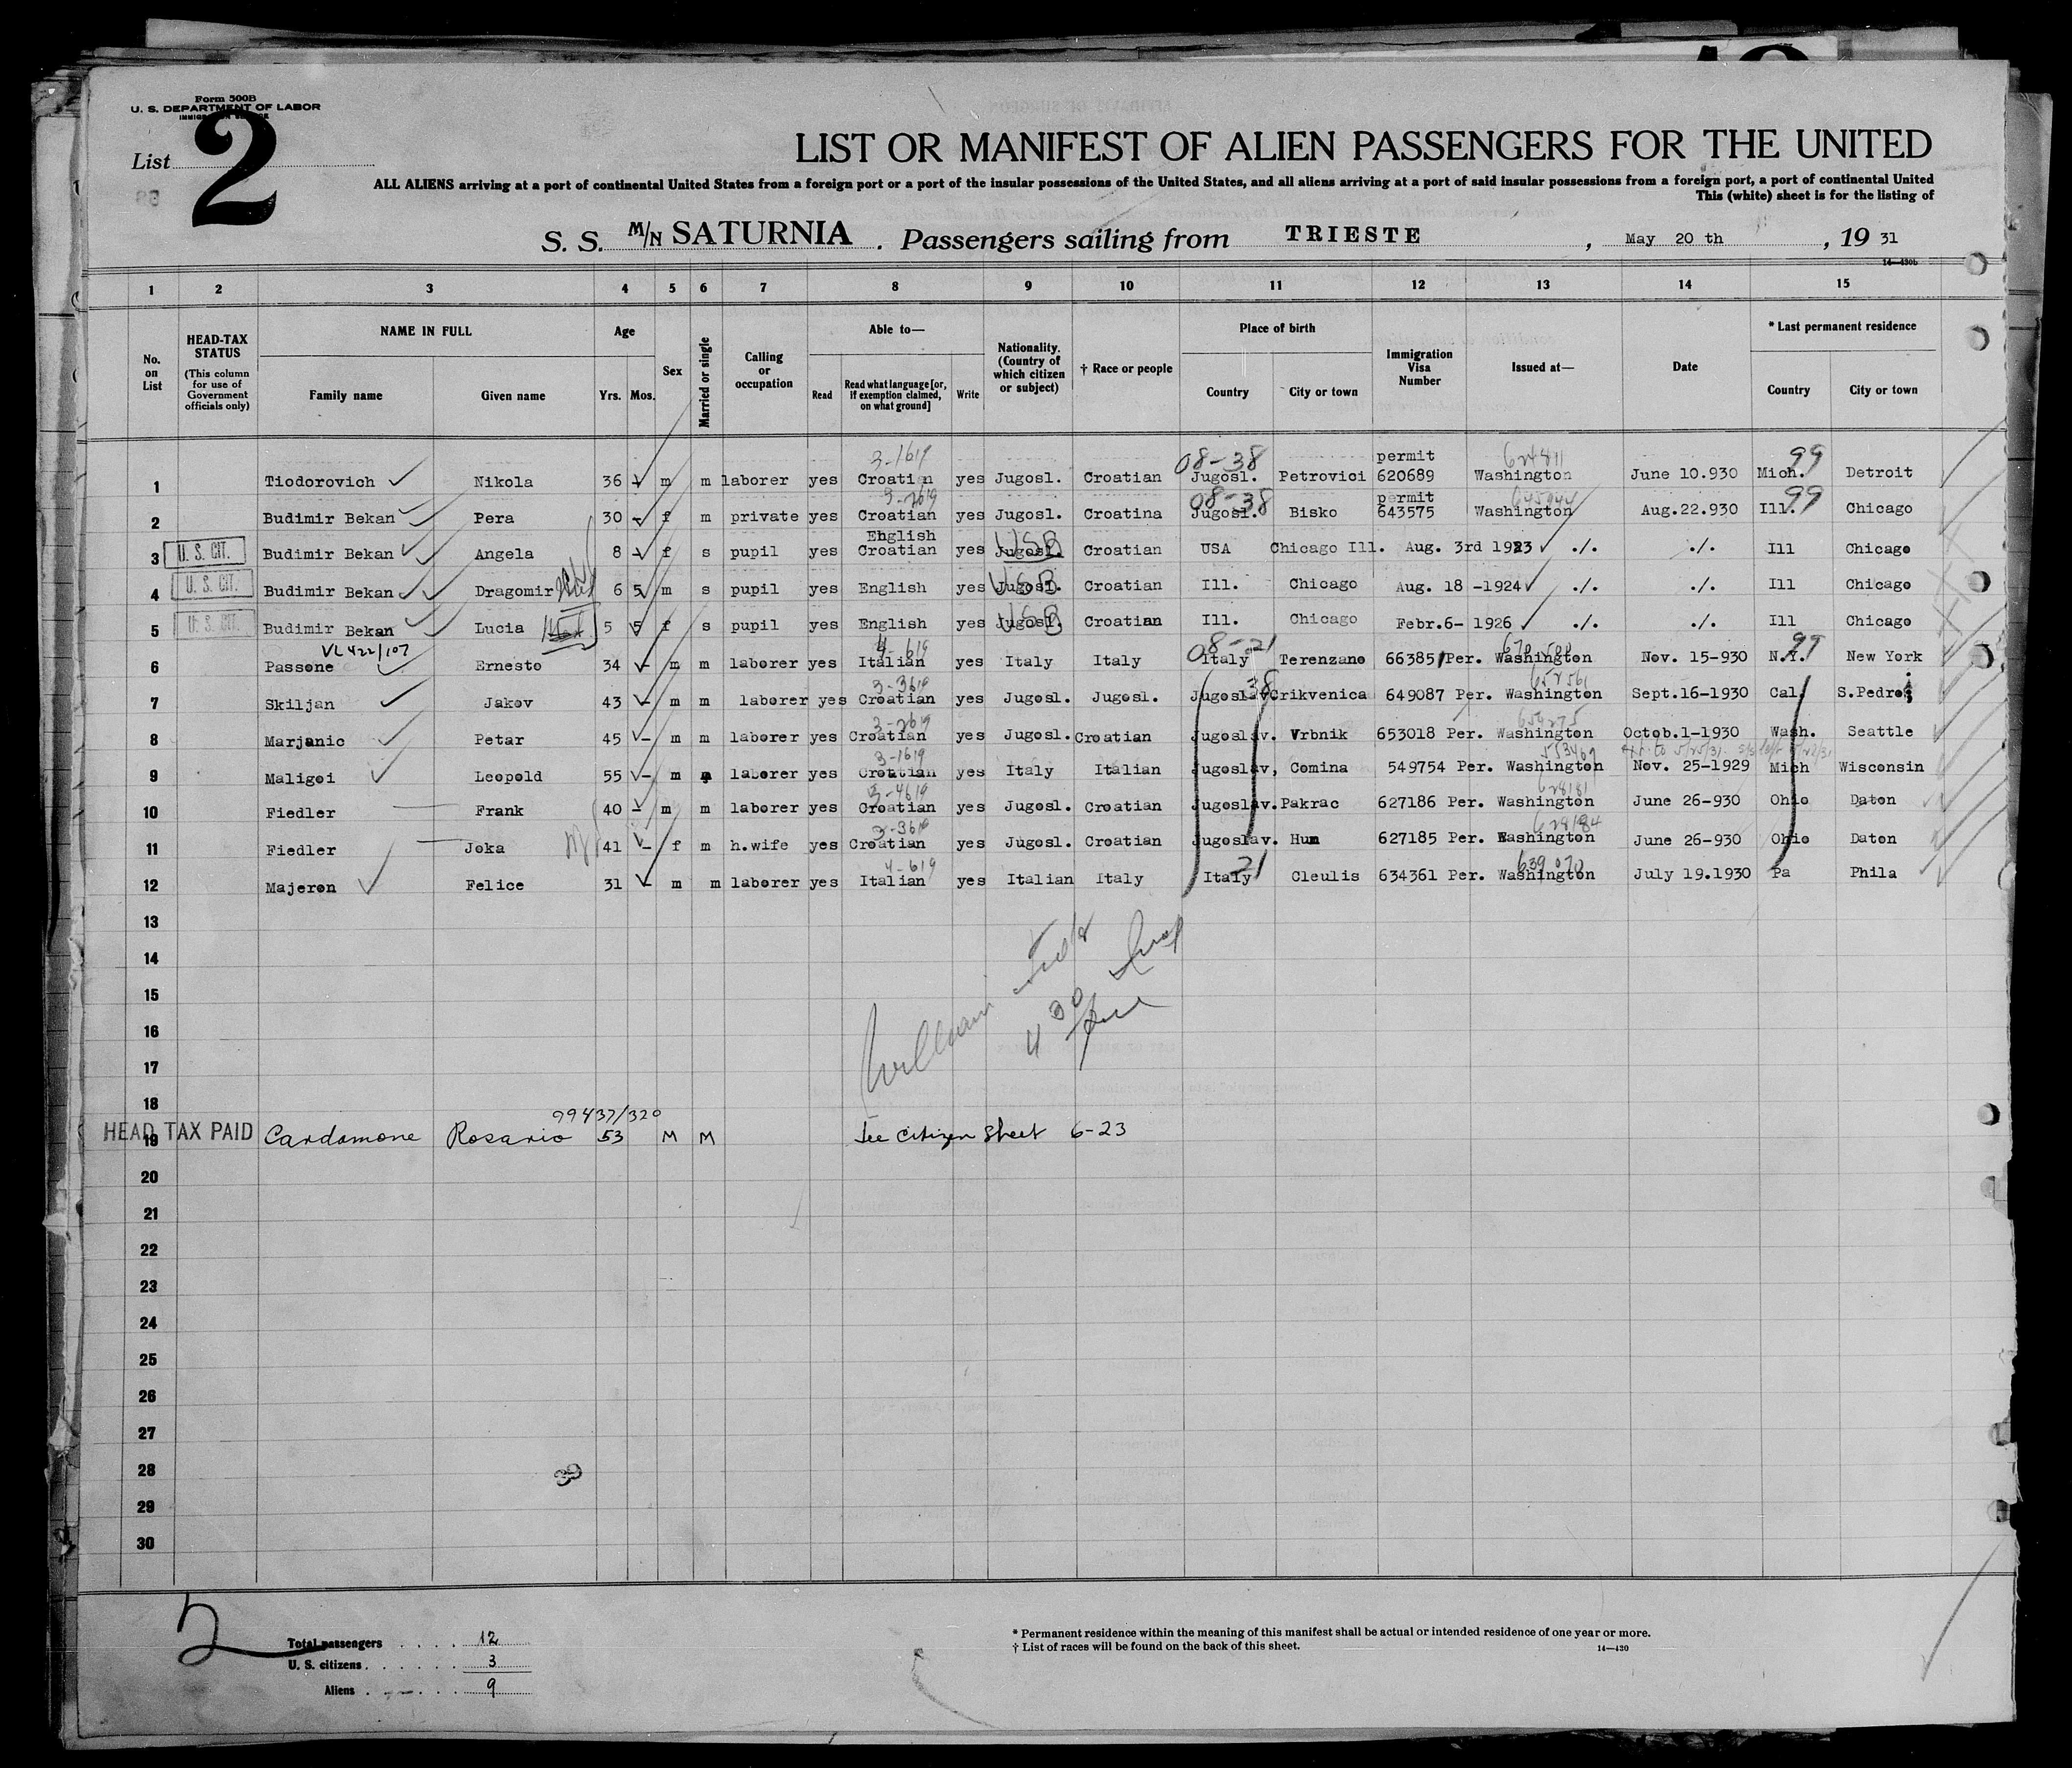 Form 500B
U. S. DEPARTMENT OF LABOR
List 2
LIST OR MANIFEST OF ALIEN PASSENGERS FOR THE UNITED
ALL ALIENS arriving at a port of continental United States from a foreign port or a port of the insular possessions of the United States, and all aliens arriving at a port of said insular possessions from a foreign port, a port of continental United
This (white) sheet is for the listing of
S. S. M/N SATURNIA . Passengers sailing from TRIESTE , May 20 th , 19 31
14—430b
1 2 3 4 5 6 7 8 9 10 11 12 13 14 15
No. on List
HEAD-TAX STATUS (This column for use of Government officials only)
NAME IN FULL
Family name Given name
Age
Yrs. Mos.
Sex
Married or single
Calling or occupation
Able to—
Read Read what language [or, if exemption claimed, on what ground] Write
Nationality. (Country of which citizen or subject)
† Race or people
Place of birth
Country City or town
Immigration Visa Number
Issued at—
Date
* Last permanent residence
Country City or town
3-1619 08-38 permit 624811 99
1 Tiodorovich Nikola 36 - m m laborer yes Croatien yes Jugosl. Croatian Jugosl. Petrovici 620689 Washington June 10.930 Mich. Detroit
3-2619 08-38 permit 99
2 Budimir Bekan Pera 30 - f m private yes Croatian yes Jugosl. Croatina Jugosl. Bisko 643575 Washington Aug.22.930 Ill. Chicago
English USA
3 U. S. CIT. Budimir Bekan Angela 8 - f s pupil yes Croatian yes Jugosl. Croatian USA Chicago Ill. Aug. 3rd 1923 ./. ./. Ill Chicago
4 U. S. CIT. Budimir Bekan Dragomir 6 5 m s pupil yes English yes Jugosl. Croatian Ill. Chicago Aug. 18 -1924 ./. ./. Ill Chicago
5 U. S. CIT. Budimir Bekan Lucia 5 5 f s pupil yes English yes Jugosl. Croatian Ill. Chicago Febr.6- 1926 ./. ./. Ill Chicago
VL 422/107 4-619 08-21 99
6 Passone Ernesto 34 - m m laborer yes Italian yes Italy Italy Italy Terenzano 66385 Per. Washington Nov. 15-930 N.Y. New York
3-3619 38
7 Skiljan Jakov 43 - m m laborer yes Croatian yes Jugosl. Jugosl. Jugoslav. Crikvenica 649087 Per. Washington Sept.16-1930 Cal. S.Pedro
3-2619
8 Marjanic Petar 45 - m m laborer yes Croatian yes Jugosl. Croatian Jugoslav. Vrbnik 653018 Per. Washington Octob.1-1930 Wash. Seattle
3-1619
9 Maligoi Leopold 55 - m m laborer yes Croatian yes Italy Italian Jugoslav, Comina 549754 Per. Washington Nov. 25-1929 Mich Wisconsin
3-4619 628181
10 Fiedler Frank 40 - m m laborer yes Croatian yes Jugosl. Croatian Jugoslav. Pakrac 627186 Per. Washington June 26-930 Ohio Daton
3-3619 628184
11 Fiedler Joka 41 - f m h.wife yes Croatian yes Jugosl. Croatian Jugoslav. Hum 627185 Per. Washington June 26-930 Ohio Daton
4-619 21 639070
12 Majeron Felice 31 - m m laborer yes Italian yes Italian Italy Italy Cleulis 634361 Per. Washington July 19.1930 Pa Phila
13
14
15
16
William
4 30
17
18
99437/320
HEAD TAX PAID
19 Cardamone Rosario 53 M M See Citizen Sheet 6-23
20
21
22
23
24
25
26
27
28
29
30
2
Total passengers . . . . 12
U. S. citizens . . . . . . 3
Aliens . . . . 9
* Permanent residence within the meaning of this manifest shall be actual or intended residence of one year or more.
† List of races will be found on the back of this sheet. 14—430